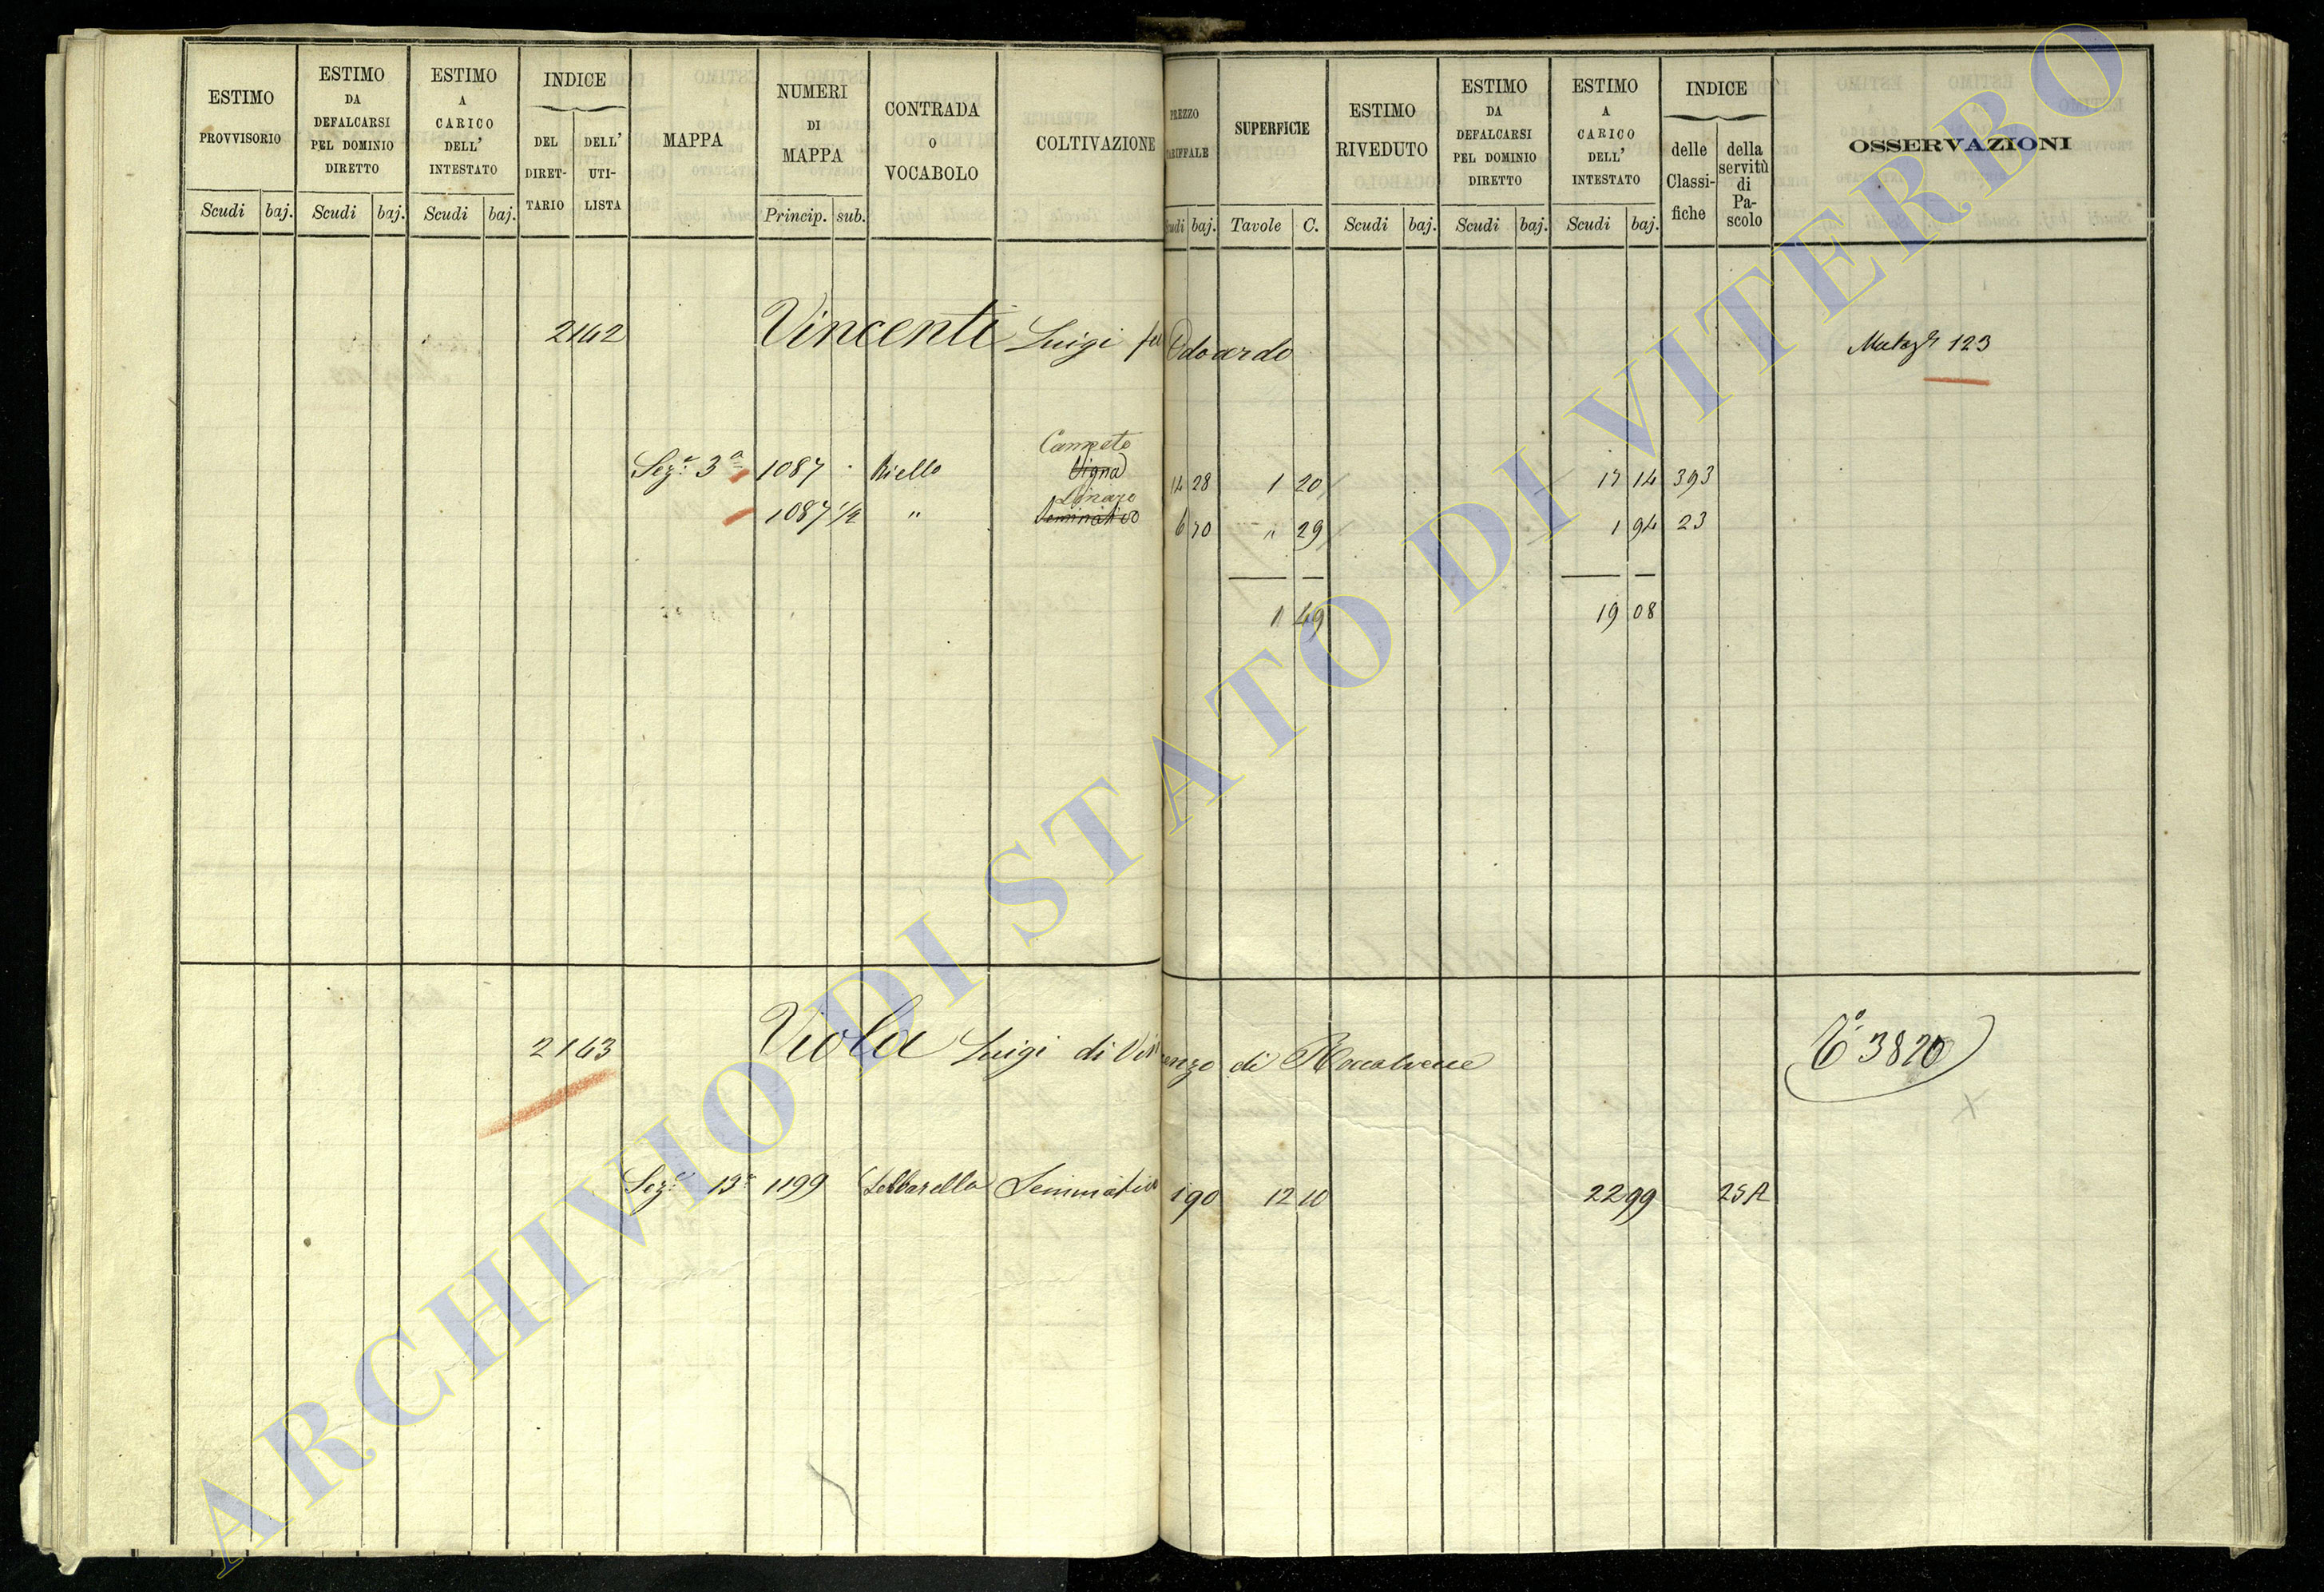 ESTIMO PROVVISORIO
ESTIMO DA DEFALCARSI PEL DOMINIO DIRETTO
ESTIMO A CARICO DELL' INTESTATO
INDICE
DEL DIRET- TARIO
DELL' UTI- LISTA
MAPPA
NUMERI DI MAPPA
CONTRADA O VOCABOLO
COLTIVAZIONE
PREZZO
SUPERFICIE
ESTIMO RIVEDUTO
ESTIMO DA DEFALCARSI PEL DOMINIO DIRETTO
ESTIMO A CARICO DELL' INTESTATO
INDICE
delle Classi- fiche
della servitù di Pa- scolo
OSSERVAZIONI
Scudi baj. Scudi baj. Scudi baj. Princip. sub. baj. Tavole C. Scudi baj. Scudi baj. Scudi baj.
2162 Vincenti Luigi fu Odoardo 123
Sez.e 3a 1087 Riello Vigna 14 28 1 20 17 14 393
1087 1/2 " Seminativo 6 70 " 29 1 94 23
1 49 19 08
2163 Viola Luigi di Vincenzo di 3820
Sez.e 13a 1199 Seminativo 1 90 12 10 22 99 25A
ARCHIVIO DI STATO DI VITERBO